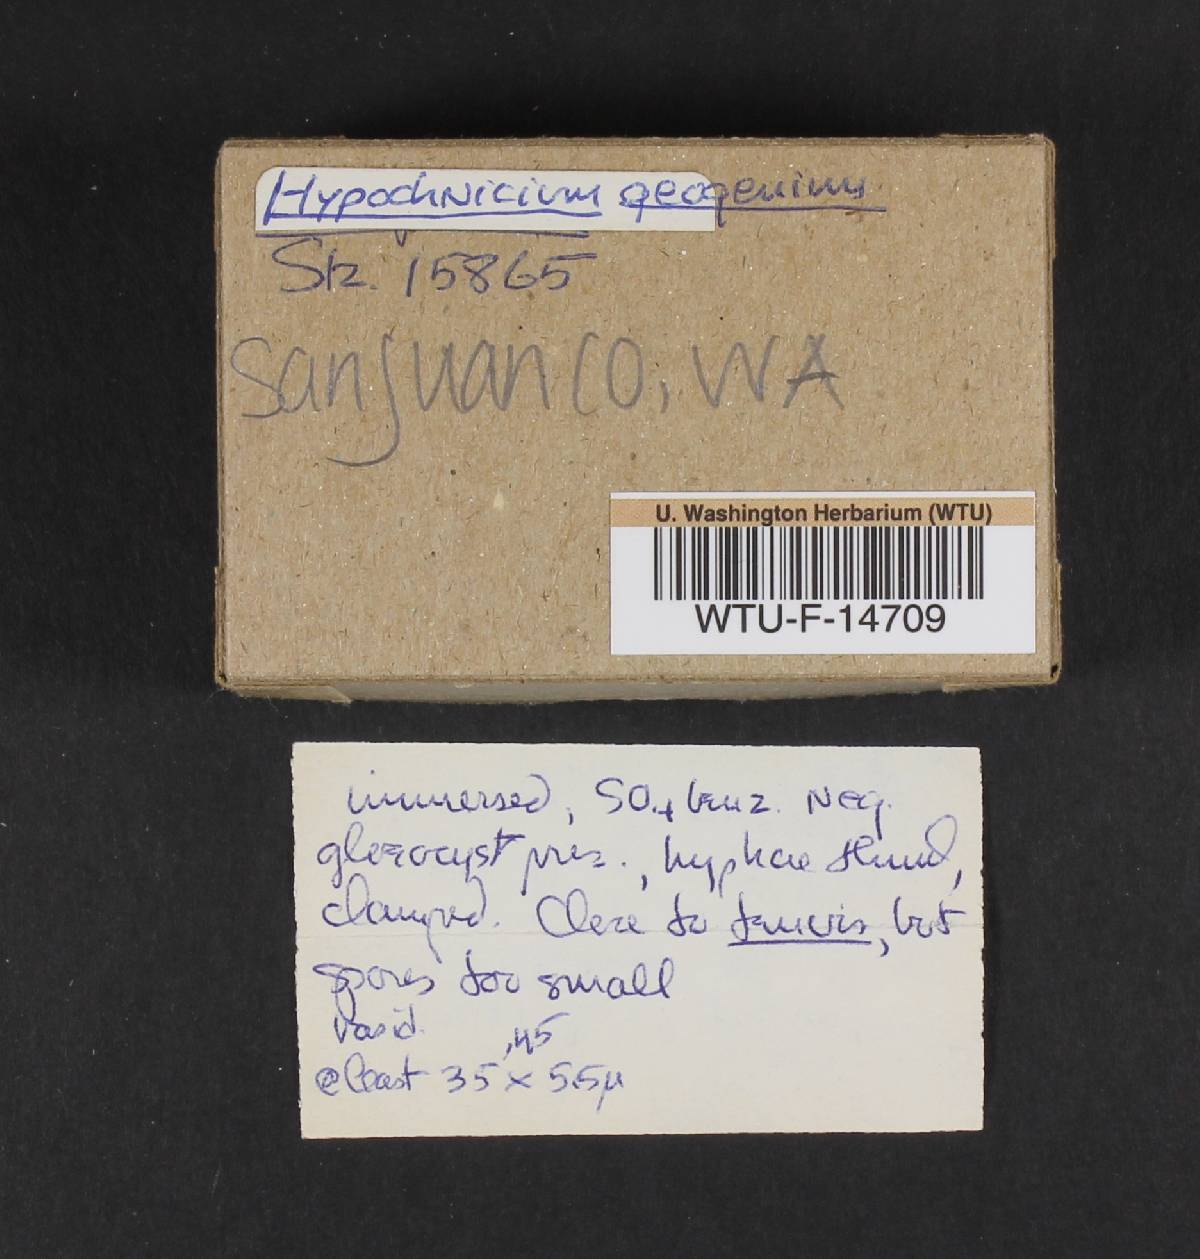 Hypochnicium geogenium
Stz. 15865
San Juan Co, WA
U. Washington Herbarium (WTU)
WTU-F-14709
immersed, SO₄ benz. Neg.
gloeocyst pres., hyphae
clamped. Close to tenuis, but
spores too small
basid. ,45
@ least 35 × 5.5μ